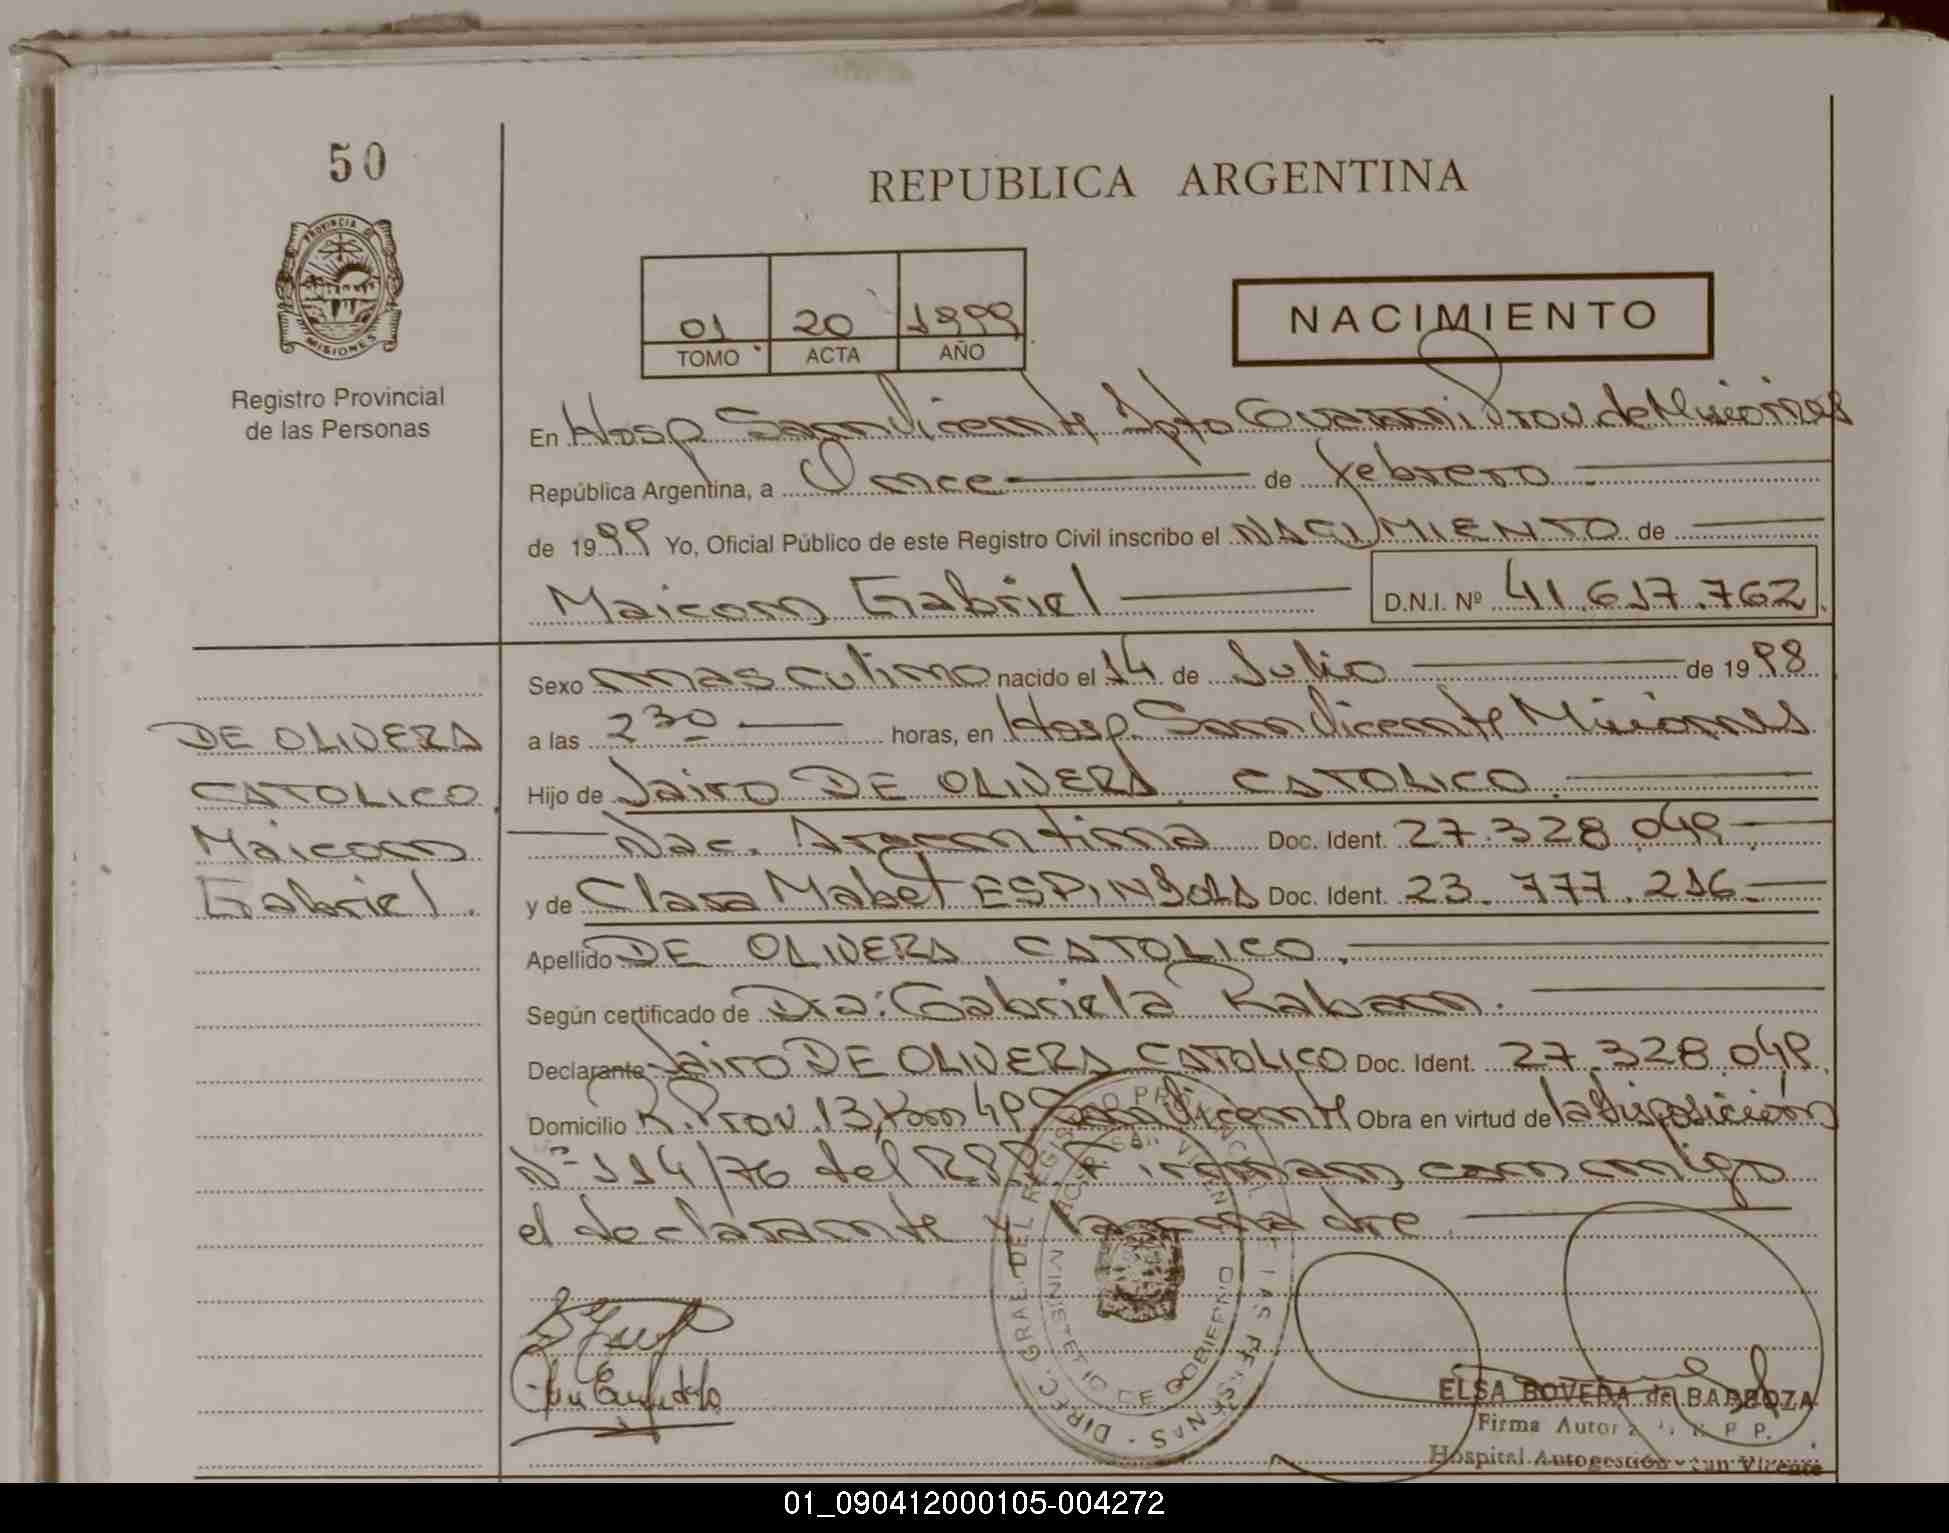 50
PROVINCIA DE
MISIONES
Registro Provincial
de las Personas
REPUBLICA ARGENTINA
01 20 1999
TOMO ACTA AÑO
NACIMIENTO
En Hosp San Vicente Dpto Guarani Prov. de Misiones
República Argentina, a Once de febrero
de 1999 Yo, Oficial Público de este Registro Civil inscribo el NACIMIENTO de
Maicon Gabriel D.N.I. Nº 41.617.762
Sexo masculino nacido el 14 de Julio de 1998
a las 2 30 horas, en Hosp. San Vicente Misiones
Hijo de Jairo DE OLIVERA CATOLICO.
Nac. Argentina Doc. Ident. 27.328.049
y de Clara Mabel ESPINDOLA Doc. Ident. 23.777.216
Apellido DE OLIVERA CATOLICO.
Según certificado de Dra: Gabriela Raban.
Declarante Jairo DE OLIVERA CATOLICO Doc. Ident. 27.328.049
Domicilio R. Prov. 13, Km 49 San Vicente Obra en virtud de la disposición
Nº 114/76 del R.P.P. Firman conmigo
el declarante y la madre.
DE OLIVERA
CATOLICO,
Maicon
Gabriel.
DIREC. GRAL. DEL REGISTRO PROVINCIAL DE LAS PERSONAS
HOSP. SAN VICENTE
MINISTERIO DE GOBIERNO
ELSA BOVEDA de BARBOZA
Firma Autoriz. R. P. P.
Hospital Autogestión - San Vicente
01_090412000105-004272